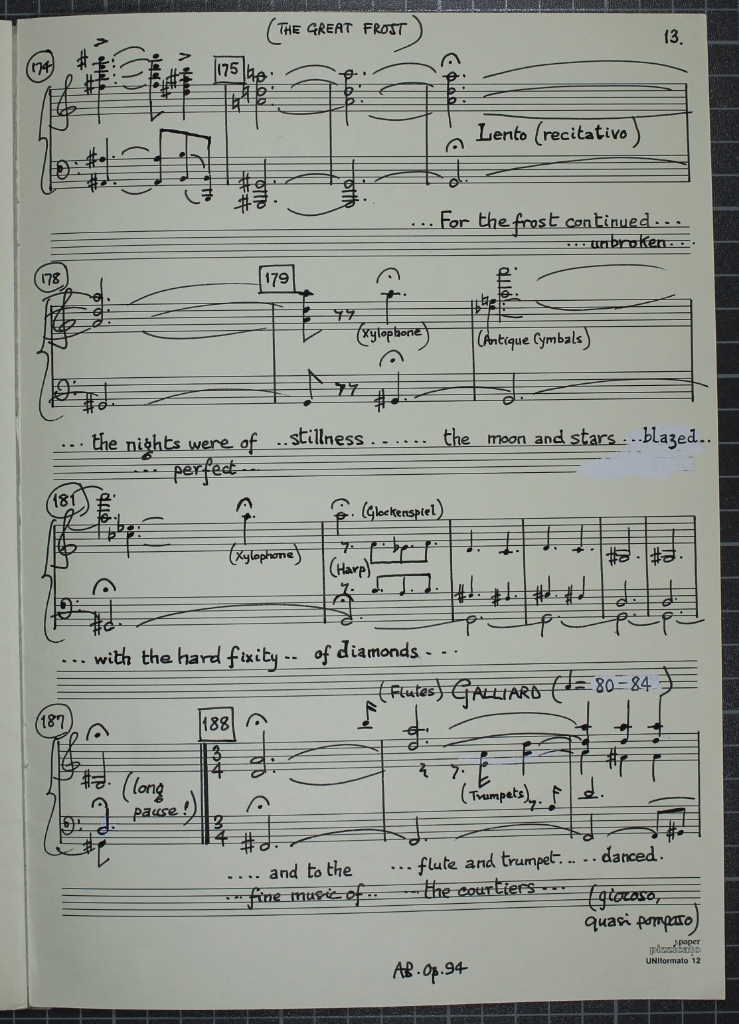 (THE GREAT FROST)
13.
174
175
Lento (recitativo)
... For the frost continued ...
... unbroken ...
178
179
(Xylophone)
(Antique Cymbals)
... the nights were of ..stillness ...... the moon and stars ...blazed..
... perfect ...
181
(Glockenspiel)
(Xylophone)
(Harp)
... with the hard fixity .. of diamonds ...
(Flutes) GALLIARD (𝅗𝅥= 80-84)
187
188
3
4
3
4
(long
pause!)
(Trumpets)
.... and to the ... flute and trumpet.... danced.
... fine music of.. ... the courtiers ...
(giocoso,
quasi pomposo)
paper
pizzicato
UNIformato 12
AB. Op. 94